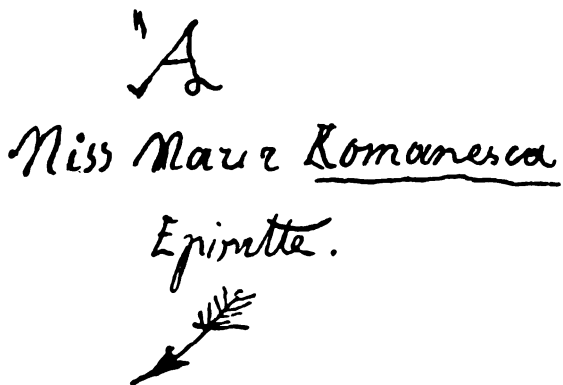 "A
Miss Maur r Romanesca
Epinette.